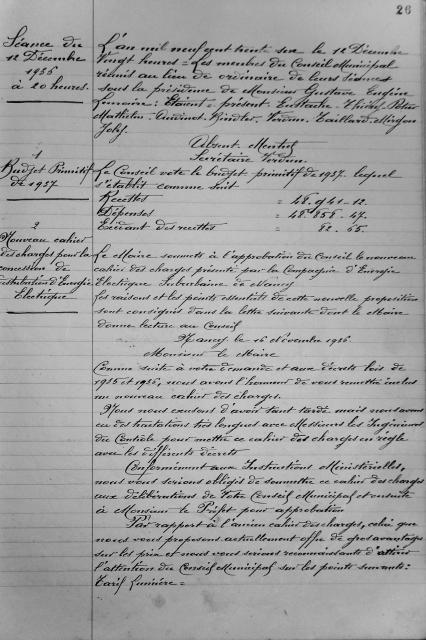 26
Séance du
12 Décembre
1936
à 20 heures.
L'an mil neuf cent trente six le 12 Décembre
Vingt heures = Les membres du Conseil Municipal
réunis au lieu de ordinaire de leurs séances
sous la présidence de Monsieur Gustave Eugène
Lemoine : Étaient présent. Eustache. Thiery. Peter
Mathelin. Audinot. Kindler. Verdun. Taillard. Mergen
Joly.
Absent Mentrel
Secrétaire Verdun
1
Budget Primitif
de 1937
Le Conseil vote le budget primitif de 1937. lequel
s'établit comme suit
Recettes = 48.941-12.
Dépenses = 48.858-47.
Excédant des recettes = 82.65.
2
Nouveau cahier
des charges pour la
concession de
distribution d'Energie
Electrique
Le Maire soumets à l'approbation du Conseil le nouveau
cahier des charges présenté par la Compagnie d'Energie
Électrique Suburbaine de Nancy
Les raisons et les points essentiels de cette nouvelle proposition
sont consignés dans la lettre suivante dont le Maire
donne lecture au Conseil
Nancy le 16 Novembre 1936
Monsieur le Maire
Comme suite à votre demande et aux décrets lois de
1935 et 1936, nous avons l'honneur de vous remettre inclus
un nouveau cahier des charges.
Nous nous excusons d'avoir tant tardé mais nous avons
eu des tractations très longues avec Messieurs les Ingénieurs
du Contrôle pour mettre ce cahier des charges en règle
avec les différents décrets
Conformément aux Instructions Ministérielles,
nous vous serions obligés de soumettre ce cahier des charges
aux délibérations de Votre Conseil Municipal et ensuite
à Monsieur le Préfet pour approbation
Par rapport à l'ancien cahier des charges, celui que
nous vous proposons actuellement offre de gros avantages
sur les prix et nous vous serions reconnaissants d'attirer
l'attention du Conseil Municipal sur les points suivants:
Tarif Lumière =